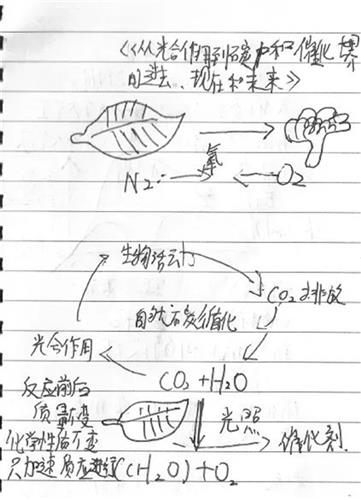 《从光合作用到碳中和 催化
的过去、现在和未来》
氧
N2 O2
生物活动
CO2排放
自然石炭催化
光合作用
CO2+H2O
反应前后
质量不变
光照
化学性质不变
催化剂
只加速反应进行
(CH2O)+O2